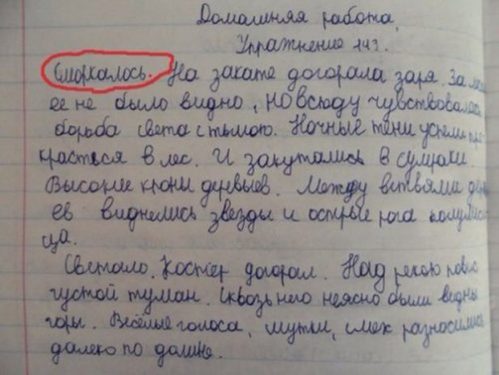 Домашняя работа
Упражнение 143.
Сморкалось. На закате догорала заря. За
ее не было видно, но всюду чувствовалась
борьба света с тьмою. Ночные тени успели
красться в лес. И закутались в сумраки
Высокие кроны деревьев. Между ветвями
ев виднелись звезды и острые рога
ца.
Светало. Костёр догорал. Над рекою
густой туман. Сквозь него неясно были видны
горы. Весёлые голоса, шутки, смех разносились
далеко по долине.